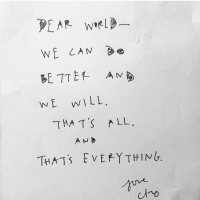 DEAR WORLD—
WE CAN Do
BETTER AND
WE WILL.
THAT'S ALL.
AND
THAT'S EVERYTHING.
love
cleo